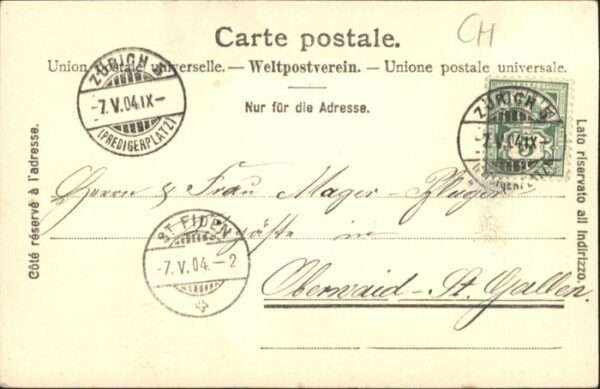 Carte postale.
CH
Union postale universelle. — Weltpostverein. — Unione postale universale.
Nur für die Adresse.
Côté réservé à l'adresse.
Lato riservato all indirizzo.
ZÜRICH
-7.V.04.IX-
(PREDIGERPLATZ)
ZÜRICH
-7.V.04.IX-
Herrn & Frau Mager-Pflüger
Gäste in
Oberwaid - St. Gallen.
ST FIDEN
-7.V.04.-2